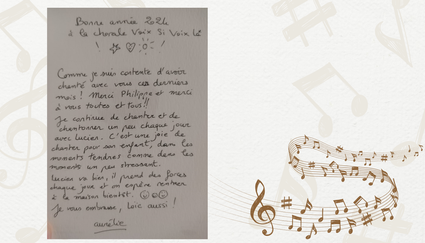 Bonne année 2024
à la chorale Voix Si Voix La
Comme je suis contente d'avoir
chanté avec vous ces derniers
mois ! Merci Philippe et merci
à vous toutes et tous !!
Je continue de chanter et de
chantonner un peu chaque jour
avec Lucien. C'est une joie de
chanter pour son enfant, dans les
moments tendres comme dans les
moments un peu stressant.
Lucien va bien, il prend des forces
chaque jour et on espère rentrer
à la maison bientôt.
Je vous embrasse, Loïc aussi !
Aurélie